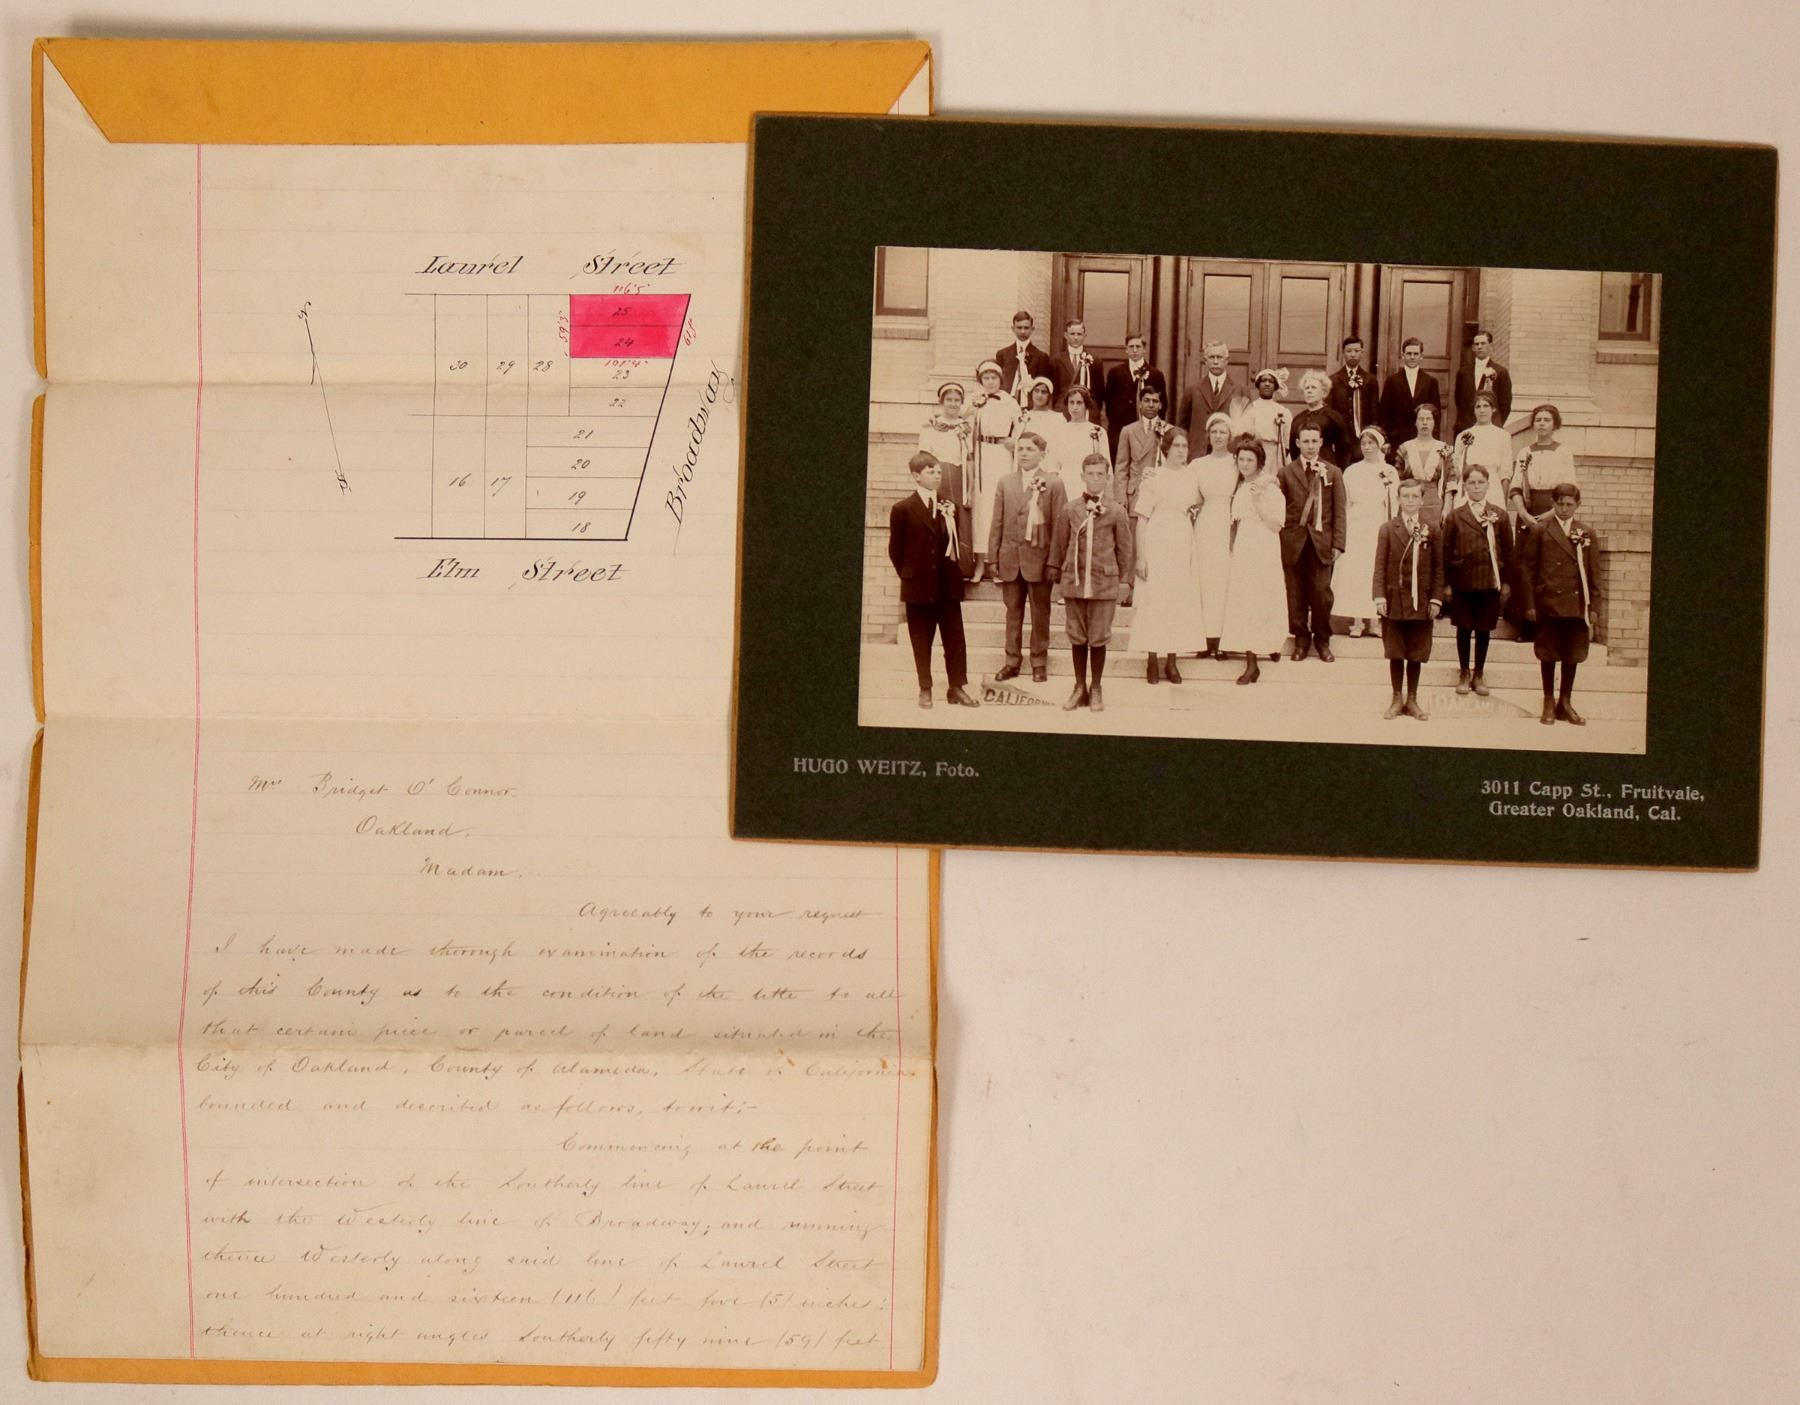 Laurel Street
116'5"
25
59'3"
24
61'5
101'4"
30 29 28 23
22
21
20
16 17 19
18
Broadway
Elm Street
Mrs Bridget O'Connor.
Oakland.
Madam.
Agreeably to your request
I have made thorough examination of the records
of this County as to the condition of the title to all
that certain piece or parcel of land situated in the
City of Oakland, County of Alameda, State of California
bounded and described as follows, towit;-
Commencing at the point
of intersection of the Southerly line of Laurel Street
with the Westerly line of Broadway; and running
thence Westerly along said line of Laurel Street
one hundred and sixteen (116) feet five (5) inches;
thence at right angles Southerly fifty nine (59) feet
CALIFORNIA
HUGO WEITZ, Foto.
3011 Capp St., Fruitvale,
Greater Oakland, Cal.